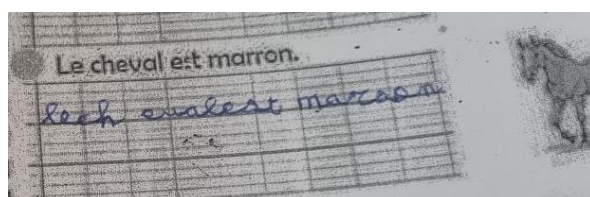 Le cheval est marron.
lech evalest marron